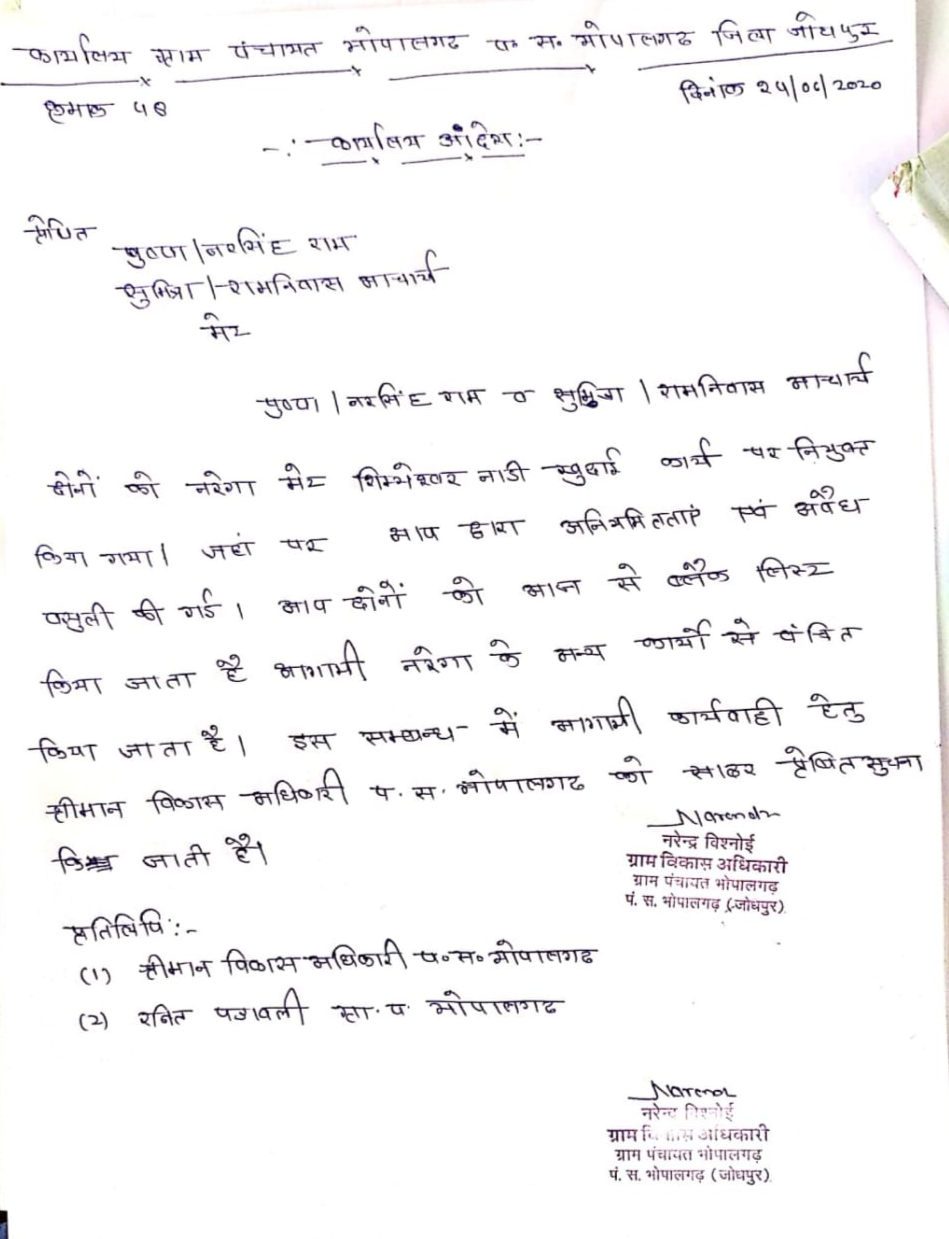 कार्यालय ग्राम पंचायत भोपालगढ प॰ स॰ भोपालगढ जिला जोधपुर
क्रमांक 48 दिनांक 24/06/2020
-: कार्यालय आदेश:-
प्रेषित
पुष्पा / नरसिंह राम
सुमित्रा / रामनिवास आचार्य
मेट
पुष्पा / नरसिंह राम व सुमित्रा / रामनिवास आचार्य
दोनों को नरेगा मेट शिम्भेश्वर नाडी खुदाई कार्य पर नियुक्त
किया गया। जहां पर आप द्वारा अनियमितताएं एवं अवैध
वसुली की गई। आप दोनों को आज से ब्लैक लिस्ट
किया जाता है आगामी नरेगा के अन्य कार्यो से वंचित
किया जाता है। इस सम्बन्ध में आगामी कार्यवाही हेतु
श्रीमान विकास अधिकारी प. स. भोपालगढ को सादर प्रेषित सुचना
कि जाती है।
Narendr
नरेन्द्र विश्नोई
ग्राम विकास अधिकारी
ग्राम पंचायत भोपालगढ़
पं. स. भोपालगढ़ (जोधपुर)
प्रतिलिपि:-
(1) श्रीमान विकास अधिकारी प॰स॰ भोपालगढ
(2) पत्रावली ग्रा.प. भोपालगढ
नरेन्द्र विश्नोई
ग्राम विकास अधिकारी
ग्राम पंचायत भोपालगढ़
पं. स. भोपालगढ़ (जोधपुर)